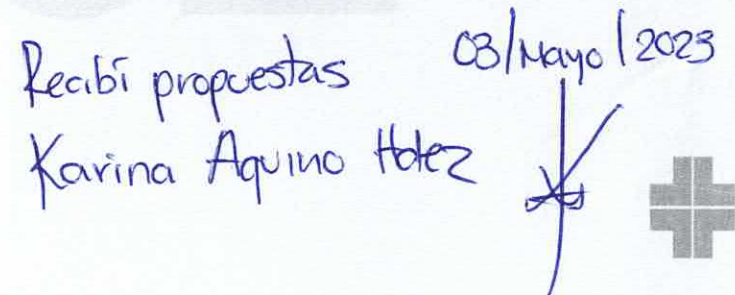 Recibí propuestas 03/Mayo/2023
Karina Aquino